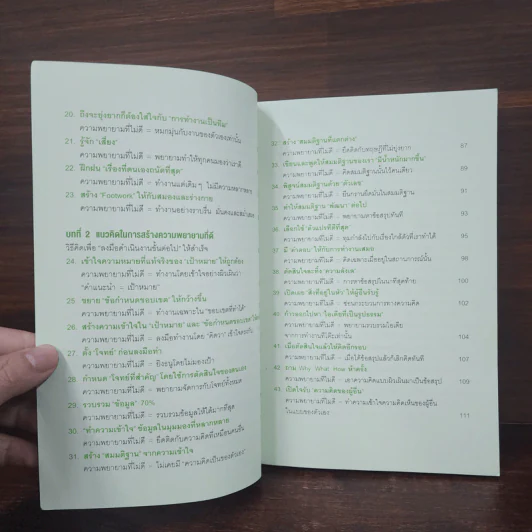 20 ถึงจะยุ่งยากก็ต้องใส่ใจกับ "การทำงานเป็นทีม"
ความพยายามที่ไม่ดี = หมกมุ่นกับงานของตัวเองเท่านั้น
21 รู้จัก "เสี่ยง"
ความพยายามที่ไม่ดี = พยายามทำให้ทุกคนมองว่าเราดี
22 ฝึกฝน "เรื่องที่ตนเองถนัดที่สุด"
ความพยายามที่ไม่ดี = ทำงานแต่เดิมๆ ไม่มีความหลากหลาย
23 สร้าง "Footwork" ให้กับสมองและร่างกาย
ความพยายามที่ไม่ดี = ทำงานอย่างราบรื่น มั่นคงและสม่ำเสมอ
บทที่ 2 แนวคิดในการสร้างความพยายามที่ดี
วิธีคิดเพื่อ "ลงมือดำเนินงานขั้นต่อไป" ให้สำเร็จ
24 เข้าใจความหมายที่แท้จริงของ "เป้าหมาย" ให้ถูกต้อง
ความพยายามที่ไม่ดี = ทำงานโดยเข้าใจอย่างผิวเผินว่า
"คำแนะนำ" = เป้าหมาย
25 ขยาย "ข้อกำหนดขอบเขต" ให้กว้างขึ้น
ความพยายามที่ไม่ดี = ทำงานเฉพาะใน "ขอบเขตที่ทำได้"
26 สร้างความเข้าใจใน "เป้าหมาย" และ "ข้อกำหนดขอบเขต"
ความพยายามที่ไม่ดี = ลงมือทำงานโดย "คิดว่า" เข้าใจตรงกัน
27 ตั้ง "โจทย์" ก่อนลงมือทำ
ความพยายามที่ไม่ดี = ยิงธนูโดยไม่มองเป้า
28 กำหนด "โจทย์ที่สำคัญ" โดยใช้การตัดสินใจของตนเอง
ความพยายามที่ไม่ดี = พยายามจัดการกับโจทย์ทั้งหมด
29 รวบรวม "ข้อมูล" 70%
ความพยายามที่ไม่ดี = รวบรวมข้อมูลให้ได้มากที่สุด
30 "ทำความเข้าใจ" ข้อมูลในมุมมองที่หลากหลาย
ความพยายามที่ไม่ดี = ยึดติดกับความคิดที่เหมือนคนอื่น
31 สร้าง "สมมติฐาน" จากความเข้าใจ
ความพยายามที่ไม่ดี = ไม่เคยมี "ความคิดเป็นของตัวเอง"
32 สร้าง "สมมติฐานที่แตกต่าง"
ความพยายามที่ไม่ดี = ยึดติดกับทฤษฎีที่ไม่ยุ่งยาก 87
33
ความพยายามที่ไม่ดี = คิดสมมติฐานนั้นไว้คนเดียว 89
34 พิสูจน์สมมติฐานด้วย "ตัวเลข"
ความพยายามที่ไม่ดี = ยืนกรานยึดมั่นในสมมติฐาน 91
35 ทำให้สมมติฐาน "พัฒนา" ต่อไป
ความพยายามที่ไม่ดี = พยายามหาข้อสรุปทันที 93
36 เลือกใช้ "ตัวแปรที่ดีที่สุด"
ความพยายามที่ไม่ดี = 95
37 มี "คำตอบ" ให้กับการทำงานเสมอ
ความพยายามที่ไม่ดี = คิดเฉพาะเมื่ออยู่ในสถานการณ์นั้น 96
38 ตัดสินใจละทิ้ง "ความลังเล"
ความพยายามที่ไม่ดี = การหาข้อสรุปในนาทีสุดท้าย 98
39 เปิดเผย "สิ่งที่อยู่ในหัว" ให้ผู้อื่นรับรู้
ความพยายามที่ไม่ดี = ซ่อนกระบวนการทางความคิด 100
40
ความพยายามที่ไม่ดี = พยายามรวบรวมไอเดีย
จากการทำงานที่โต๊ะเท่านั้น 104
41 เมื่อตัดสินใจแล้วให้คิดอีกรอบ
ความพยายามที่ไม่ดี = เมื่อได้ข้อสรุปแล้วก็เลิกคิดทันที 107
42 ถาม Why What How ห้าครั้ง
ความพยายามที่ไม่ดี = เอาความคิดแบบผิวเผินมาเป็นข้อสรุป 109
43 เปิดใจรับ "ความคิดของผู้อื่น"
ความพยายามที่ไม่ดี = ทำความเข้าใจความคิดเห็นของผู้อื่น
ในแบบของตัวเอง 111